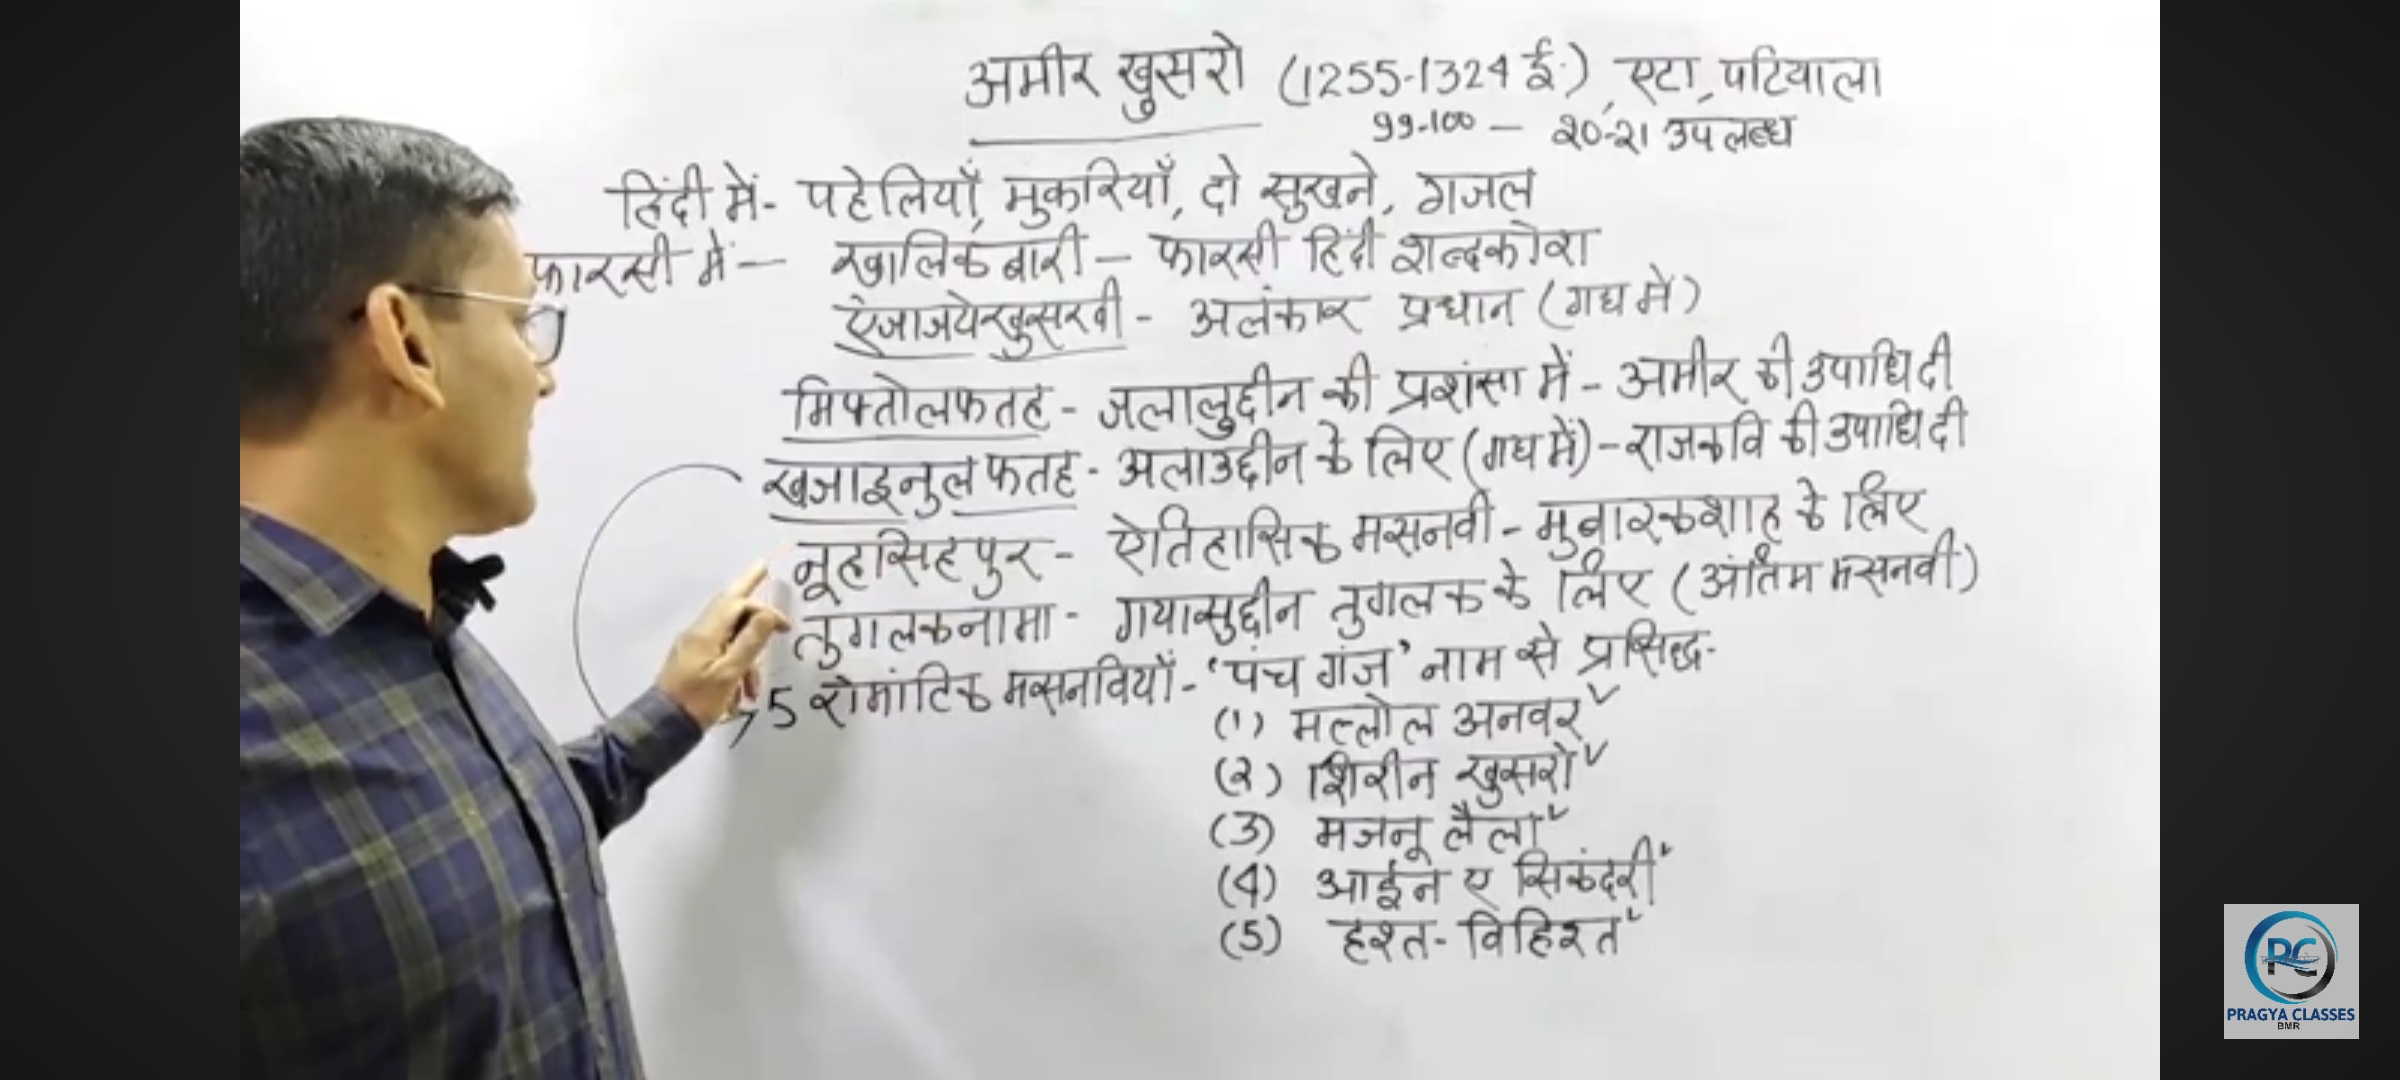 अमीर खुसरो (1255-1324 ई.), एटा, पटियाला
99-100 — २०-२१ उपलब्ध
हिंदी में- पहेलियाँ, मुकरियाँ, दो सुखने, गजल
फारसी में — खालिकबारी – फारसी हिंदी शब्दकोश
एजाजयेखुसरवी - अलंकार प्रधान (गद्य में)
मिफ्तोलफतह - जलालुद्दीन की प्रशंसा में - अमीर की उपाधि दी
खजाइनुल फतह - अलाउद्दीन के लिए (गद्य में) - राजकवि की उपाधि दी
नूहसिहपुर - ऐतिहासिक मसनवी - मुबारकशाह के लिए
तुगलकनामा - गयासुद्दीन तुगलक के लिए (अंतिम मसनवी)
5 रोमांटिक मसनवियाँ - 'पंच गंज' नाम से प्रसिद्ध-
(1) मल्लोल अनवर
(२) शिरीन खुसरो
(3) मजनू लैला
(4) आईन ए सिकंदरी
(5) हश्त - विहिश्त
PC
PRAGYA CLASSES
BMR